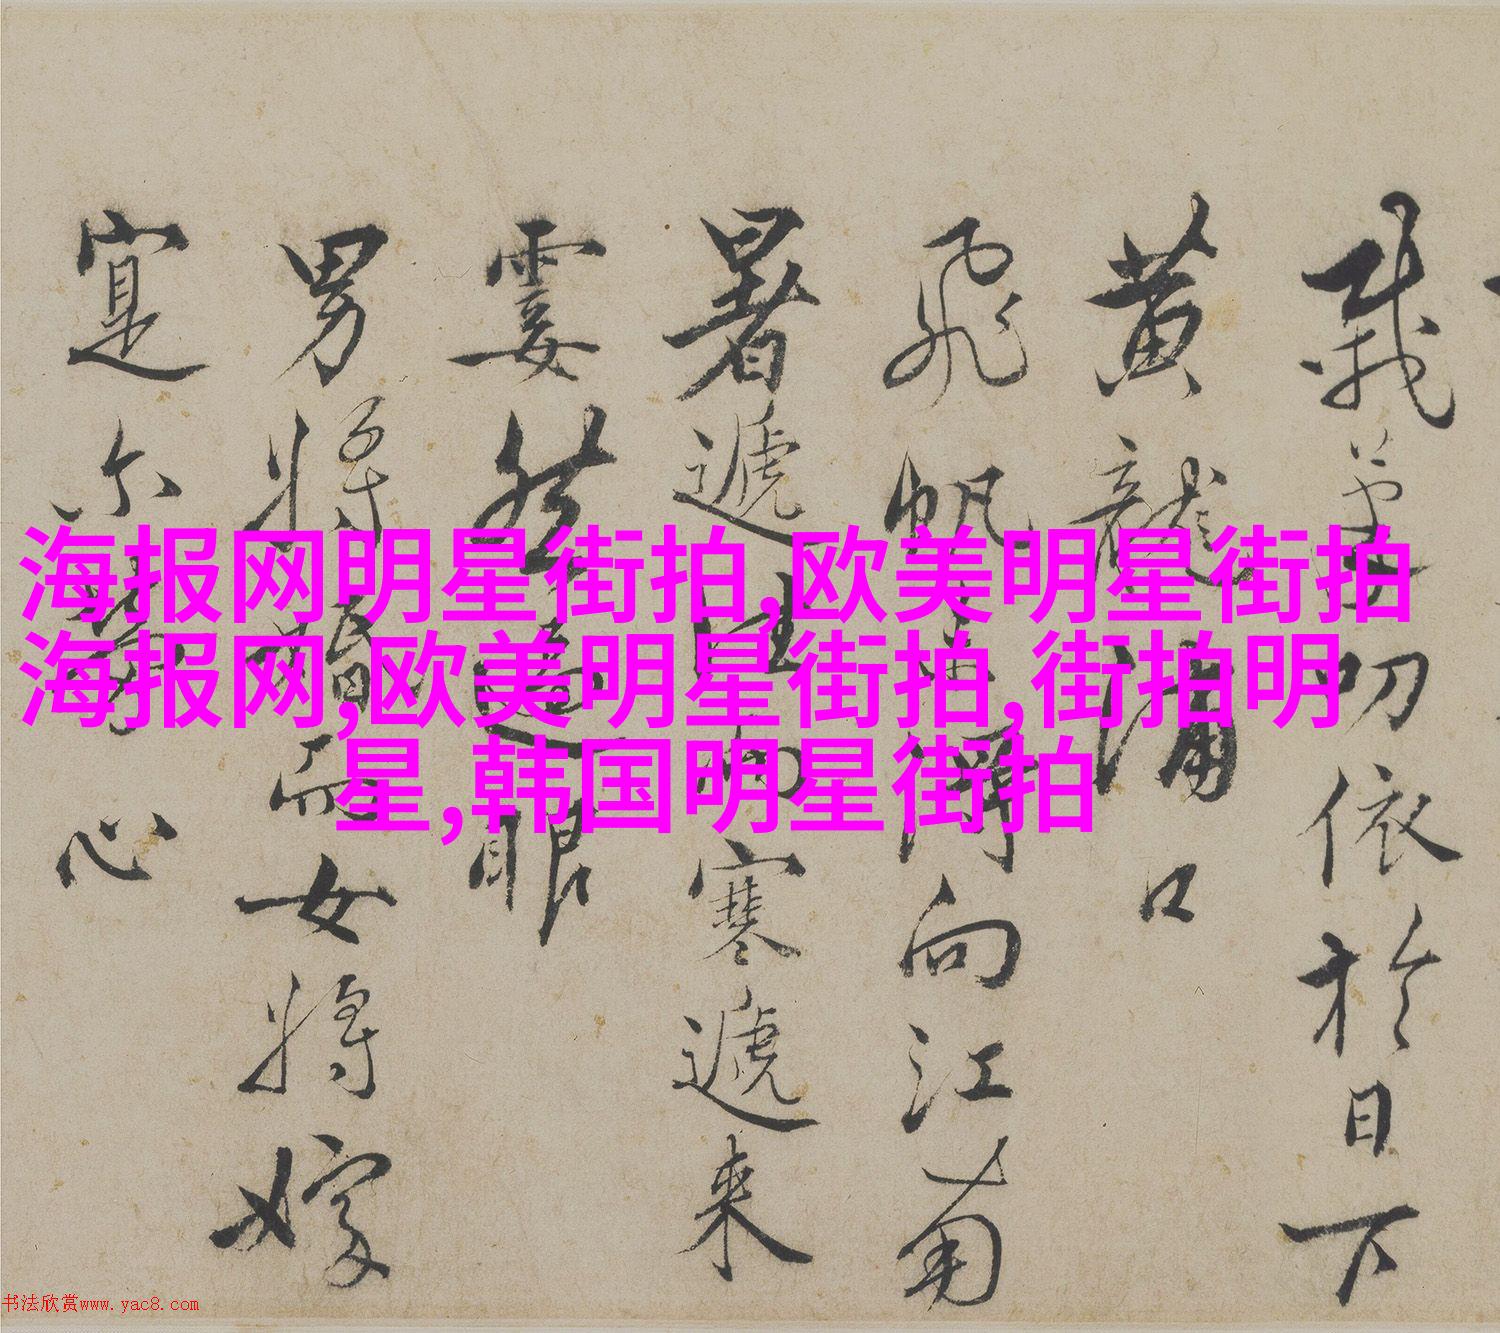 海报网明星街拍,欧美明星街拍
海报网,欧美明星街拍,街拍明
星,韩国明星街拍
切依於日下
黄龍浦口
飛帆向江
暑遞而寒遞來
霎然過眼
男將婚而女將嫁
寔尔心
书法欣赏www.yac8.com